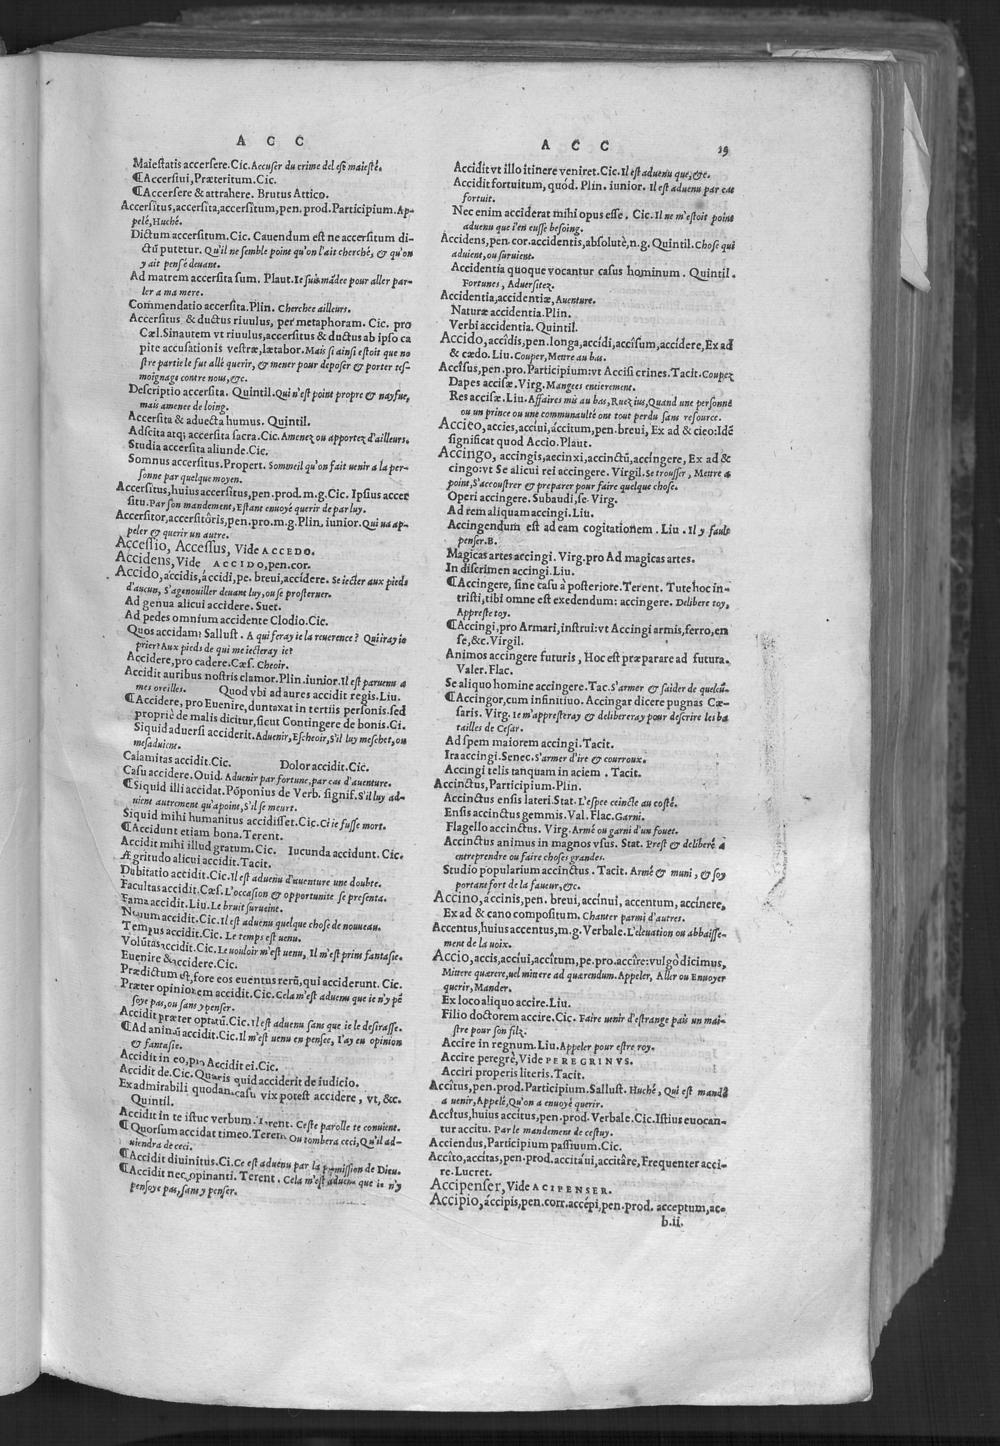 A C C
Maiestatis accersere.Cic. Accuser du crime del ese maiesté.
¶Accersiui, Præteritum.Cic.
¶Accersere & attrahere. Brutus Attico.
Accersitus,accersita,accersitum,pen. prod.Participium. Ap-
pelé, Huché.
Dictum accersitum.Cic. Cauendum est ne accersitum di-
ctū putetur. Qu'il ne semble point qu'on l'ait cherché, & qu'on
y ait pensé deuant.
Ad matrem accersita sum. Plaut. Ie suis mādee pour aller par-
ler a ma mere.
Commendatio accersita.Plin. Cherchee ailleurs.
Accersitus & ductus riuulus, per metaphoram. Cic. pro
Cæl.Sinautem vt riuulus,accersitus & ductus ab ipso ca
pite accusationis vestræ, lætabor. Mais si ainsi estoit que no
stre partie le fut allé querir, & mener pour deposer & porter tes-
moignage contre nous,&c.
Descriptio accersita. Quintil. Qui n'est point propre & nayfue,
mais amenee de loing.
Accersita & aduecta humus. Quintil.
Adscita atq; accersita sacra.Cic. Amenez ou apportez d'ailleurs.
Studia accersita aliunde.Cic.
Somnus accersitus.Propert. Sommeil qu'on fait uenir a la per-
sonne par quelque moyen.
Accersitus,huius accersitus,pen.prod.m.g.Cic. Ipsius accer
situ. Par son mandement, Estant enuoyé querir de par luy.
Accersitor,accersitôris,pen.pro.m.g.Plin.iunior. Qui ua ap-
peler & querir un autre.
Accessio, Accessus, Vide ACCEDO.
Accidens, Vide ACCIDO,pen.cor.
Accido,áccidis,áccidi,pe. breui,accidere. Se iecter aux pieds
d'aucun, S'agenouiller deuant luy, ou se prosterner.
Ad genua alicui accidere. Suet.
Ad pedes omnium accidente Clodio.Cic.
Quos accidam? Sallust. A qui feray ie la reuerence? Qui iray ie
prier? Aux pieds de qui me iecteray ie?
Accidere,pro cadere.Cæs. Cheoir.
Accidit auribus nostris clamor.Plin.iunior. Il est paruenu a
mes oreilles. Quod vbi ad aures accidit regis.Liu.
¶Accidere, pro Euenire,duntaxat in tertiis personis.sed
propriè de malis dicitur,sicut Contingere de bonis.Ci.
Siquid aduersi acciderit. Aduenir, Escheoir, S'il luy meschet, ou
mesaduient.
Calamitas accidit.Cic. Dolor accidit.Cic.
Casu accidere. Ouid. Aduenir par fortune, par cas d'auenture.
¶Siquid illi accidat. Pōponius de Verb. signif. S'il luy ad-
uient autrement qu'apoint, S'il se meurt.
Siquid mihi humanitus accidisset.Cic. Ci ie fusse mort.
¶Accidunt etiam bona.Terent.
Accidit mihi illud gratum.Cic. Iucunda accidunt. Cic.
Ægritudo alicui accidit.Tacit.
Dubitatio accidit.Cic. Il est aduenu d'auenture une doubte.
Facultas accidit.Cæs. L'occasion & opportunite se presenta.
Fama accidit.Liu. Le bruit surueint.
Nouum accidit.Cic. Il est aduenu quelque chose de nouueau.
Tempus accidit.Cic. Le temps est uenu.
Volūtas accidit.Cic. Le uouloir m'est uenu, Il m'est prins fantasie.
Euenire & accidere.Cic.
Prædictum est,fore eos euentus rerū,qui acciderunt. Cic.
Præter opinionem accidit.Cic. Cela m'est aduenu que ie n'y pē
soye pas, ou sans y penser.
Accidit præter optatū.Cic. Il est aduenu sans que ie le desirasse.
¶Ad animū accidit.Cic. Il m'est uenu en pensee, I'ay eu opinion
& fantasie.
Accidit in eo,pro Accidit ei.Cic.
Accidit de.Cic. Quæris quid acciderit de iudicio.
Ex admirabili quodam casu vix potest accidere, vt, &c.
Quintil.
Accidit in te istuc verbum.Terent. Ceste parolle te conuient.
¶Quorsum accidat timeo.Terent. Ou tombera ceci, Qu'il ad-
uiendra de ceci.
¶Accidit diuinitus.Ci. Ce est aduenu par la permission de Dieu.
¶Accidit nec opinanti. Terent. Cela m'est aduenu que ie n'y
pensoye pas, sans y penser.
A C C 19
Accidit vt illo itinere veniret.Cic. Il est aduenu que, &c.
Accidit fortuitum, quód. Plin. iunior. Il est aduenu par cas
fortuit.
Nec enim acciderat mihi opus esse. Cic. Il ne m'estoit point
aduenu que i'en eusse besoing.
Accidens,pen.cor.accidentis,absolutè,n.g.Quintil. Chose qui
aduient, ou suruient.
Accidentia quoque vocantur casus hominum. Quintil.
Fortunes, Aduersitez.
Accidentia,accidentiæ, Auenture.
Naturæ accidentia.Plin.
Verbi accidentia. Quintil.
Accido,accîdis,pen.longa,accídi,accîsum,accîdere,Ex ad
& cædo. Liu. Couper, Mettre au bas.
Accîsus,pen.pro.Participium:vt Accisi crines.Tacit. Coupez
Dapes accisæ.Virg. Mangees entierement.
Res accisæ.Liu. Affaires mis au bas, Ruez ius, Quand une personne
ou un prince ou une communaulté ont tout perdu sans resource.
Accieo,accies,acciui,áccitum,pen.breui, Ex ad & cieo:Idē
significat quod Accio.Plaut.
Accingo, accingis,accinxi,accinctū,accingere, Ex ad &
cingo:vt Se alicui rei accingere. Virgil. Se trousser, Mettre a
point, S'accoustrer & preparer pour faire quelque chose.
Operi accingere. Subaudi,se. Virg.
Ad rem aliquam accingi. Liu.
Accingendum est ad eam cogitationem. Liu. Il y fault
penser.B.
Magicas artes accingi. Virg.pro Ad magicas artes.
In discrimen accingi.Liu.
¶Accingere, sine casu à posteriore.Terent. Tute hoc in-
tristi,tibi omne est exedendum: accingere. Delibere toy,
Appreste toy.
¶Accingi,pro Armari,instrui:vt Accingi armis,ferro,en
se,&c.Virgil.
Animos accingere futuris, Hoc est præparare ad futura.
Valer.Flac.
Se aliquo homine accingere.Tac. S'armer & s'aider de quelcū-
¶Accingor,cum infinitiuo. Accingar dicere pugnas Cæ-
saris. Virg. Ie m'appresteray & delibereray pour descrire les ba
tailles de Cesar.
Ad spem maiorem accingi.Tacit.
Ira accingi.Senec. S'armer d'ire & courroux.
Accingi telis tanquam in aciem. Tacit.
Accinctus, Participium.Plin.
Accinctus ensis lateri.Stat. L'espee ceincte au costé.
Ensis accinctus gemmis.Val.Flac. Garni.
Flagello accinctus. Virg. Armé ou garni d'un fouet.
Accinctus animus in magnos vsus. Stat. Prest & deliberé a
entreprendre ou faire choses grandes.
Studio popularium accinctus. Tacit. Armé & muni, & soy
portant fort de la faueur, &c.
Accino,áccinis,pen. breui, accínui, accentum, accinere,
Ex ad & cano compositum. Chanter parmi d'autres.
Accentus,huius accentus,m.g. Verbale. L'eleuation ou abbaisse-
ment de la uoix.
Accio,accis,acciui,accîtum,pe.pro.accîre:vulgò dicimus,
Mittere quærere, uel mittere ad quærendum. Appeler, Aller ou Enuoyer
querir, Mander.
Ex loco aliquo accire.Liu.
Filio doctorem accire.Cic. Faire uenir d'estrange pais un mai-
stre pour son filz.
Accire in regnum.Liu. Appeler pour estre roy.
Accire peregrè,Vide PEREGRINVS.
Acciri properis literis.Tacit.
Accîtus,pen.prod.Participium.Sallust. Huché, Qui est mandé
a uenir, Appelé, Qu'on a enuoyé querir.
Accîtus,huius accitus,pen.prod.Verbale.Cic.Istius euocan-
tur accitu. Par le mandement de cestuy.
Acciendus,Participium passiuum.Cic.
Accîto,accitas,pen.prod.accitáui,accitâre,Frequenter acci-
re.Lucret.
Accipenser, Vide ACIPENSER.
Accipio,áccipis,pen.corr.accépi,pen.prod. acceptum,ac-
b.ii.